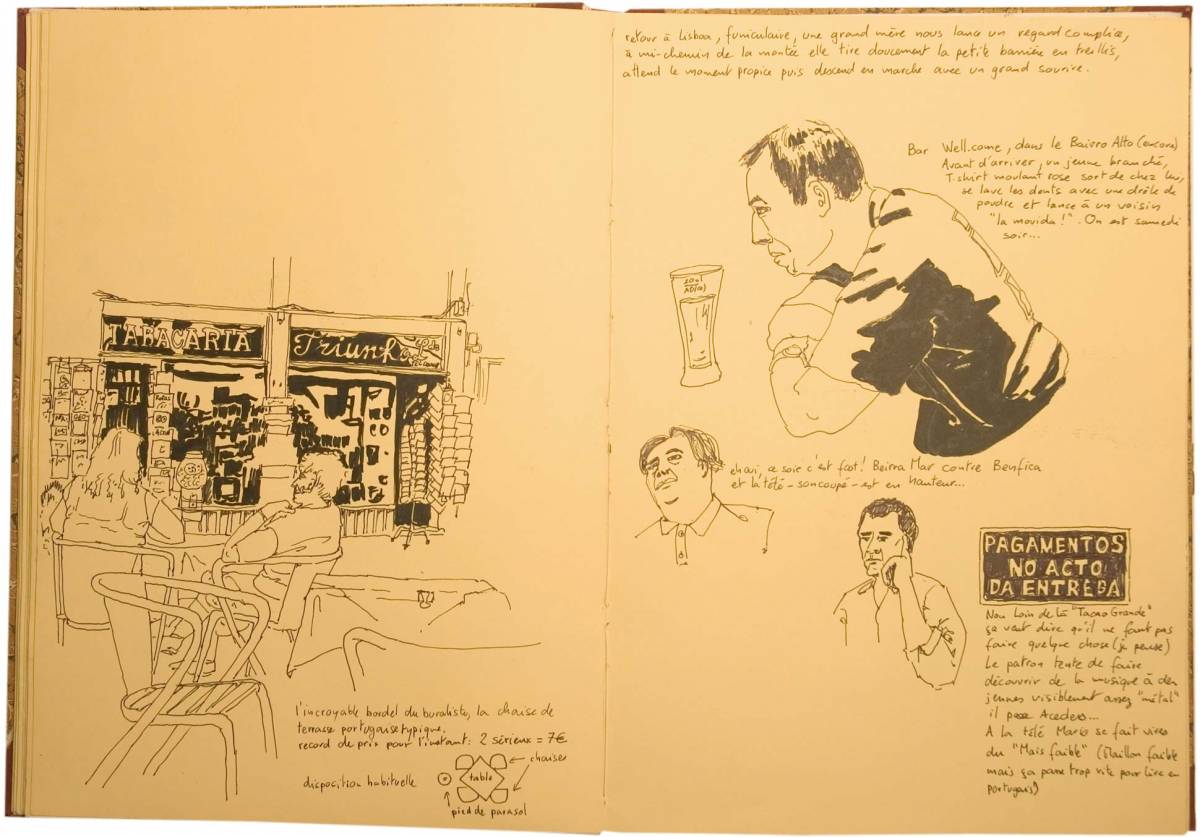 TABACARIA
Triunfo
l'incroyable bordel du buraliste, la chaise de
terrasse portugaise typique.
record de prix pour l'instant : 2 sérieux = 7€
disposition habituelle
table
chaises
pied de parasol
retour à Lisboa, funiculaire, une grand mère nous lance un regard complice,
à mi-chemin de la montée elle tire doucement la petite barrière en treillis,
attend le moment propice puis descend en marche avec un grand sourire.
Bar Well.come, dans le Bairro Alto (encore)
Avant d'arriver, un jeune branché,
T.shirt moulant rose sort de chez lui,
se lave les dents avec une drôle de
poudre et lance à un voisin
"la movida !". On est samedi
soir...
eh oui, ce soir c'est foot! Beira Mar contre Benfica
et la télé - son coupé - est en hauteur...
PAGAMENTOS
NO ACTO
DA ENTREGA
Non loin de là "Tacao Grande"
ça veut dire qu'il ne faut pas
faire quelque chose (je pense)
Le patron tente de faire
découvrir de la musique à des
jeunes visiblement assez "métal"
il passe
A la télé Mario se fait virer
du "Mais faible" (Maillon faible
mais ça passe trop vite pour lire en
portugais)